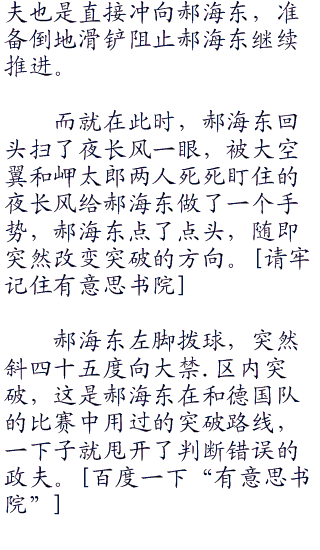 夫也是直接冲向郝海东，准
备倒地滑铲阻止郝海东继续
推进。
而就在此时，郝海东回
头扫了夜长风一眼，被大空
翼和岬太郎两人死死盯住的
夜长风给郝海东做了一个手
势，郝海东点了点头，随即
突然改变突破的方向。[请牢
记住有意思书院]
郝海东左脚拨球，突然
斜四十五度向大禁.区内突
破，这是郝海东在和德国队
的比赛中用过的突破路线，
一下子就甩开了判断错误的
政夫。[百度一下“有意思书
院”]